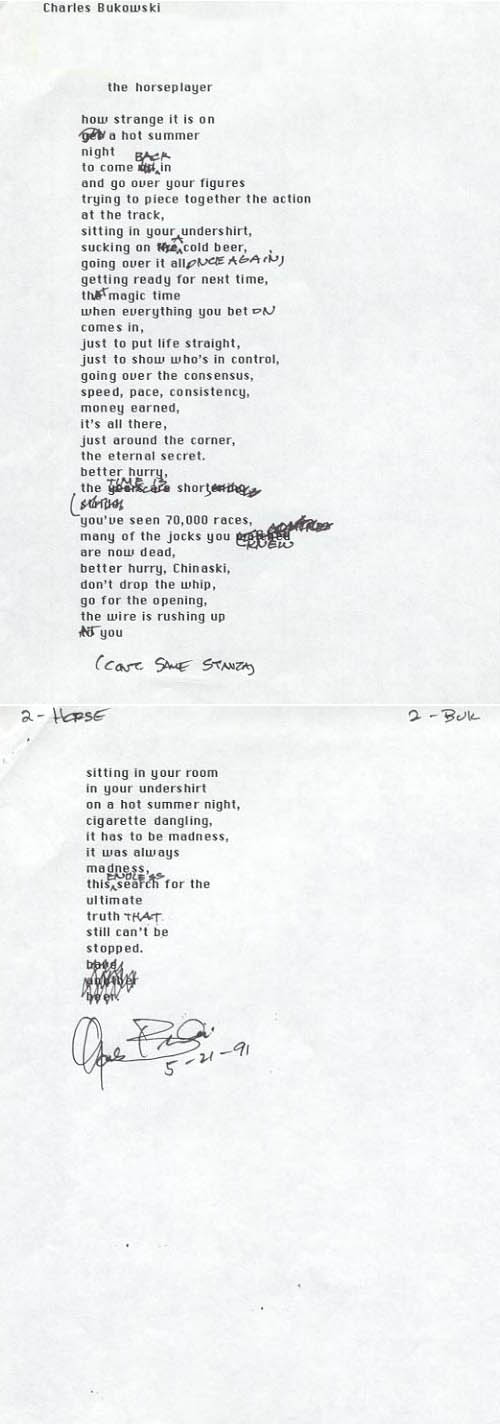 Charles Bukowski
the horseplayer
how strange it is on
a hot summer
night
to come BACK in
and go over your figures
trying to piece together the action
at the track,
sitting in your undershirt,
sucking on cold beer,
going over it all ONCE AGAIN,
getting ready for next time,
that magic time
when everything you bet ON
comes in,
just to put life straight,
just to show who's in control,
going over the consensus,
speed, pace, consistency,
money earned,
it's all there,
just around the corner,
the eternal secret.
better hurry,
the TIME IS short
you've seen 70,000 races,
many of the jocks you KNEW
are now dead,
better hurry, Chinaski,
don't drop the whip,
go for the opening,
the wire is rushing up
AT you
(CONT SAME STANZA)
2 - HORSE
2 - BUK
sitting in your room
in your undershirt
on a hot summer night,
cigarette dangling,
it has to be madness,
it was always
madness,
this ENDLESS search for the
ultimate
truth THAT
still can't be
stopped.
have
another
beer.
5-21-91